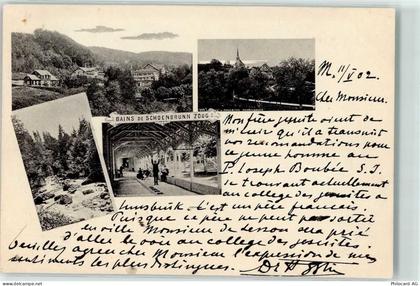 BAINS DE SCHOENBRUNN ZOUG
M. 11/V 02
Cher Monsieur.
Mon frère jésuite vient de
m'écrire qu'il a transmis
vos recommandations pour
ce jeune homme au
P. Joseph Boubée S.J.
se trouvant actuellement
au collège des jésuites à
Innsbruck. C'est un père français
Puisque ce père ne peut pas sortir
en ville Monsieur de est prié
d'aller le voir au collège des jésuites.
Veuillez agréer cher Monsieur l'expression de mes
sentiments les plus distingués.
Dr